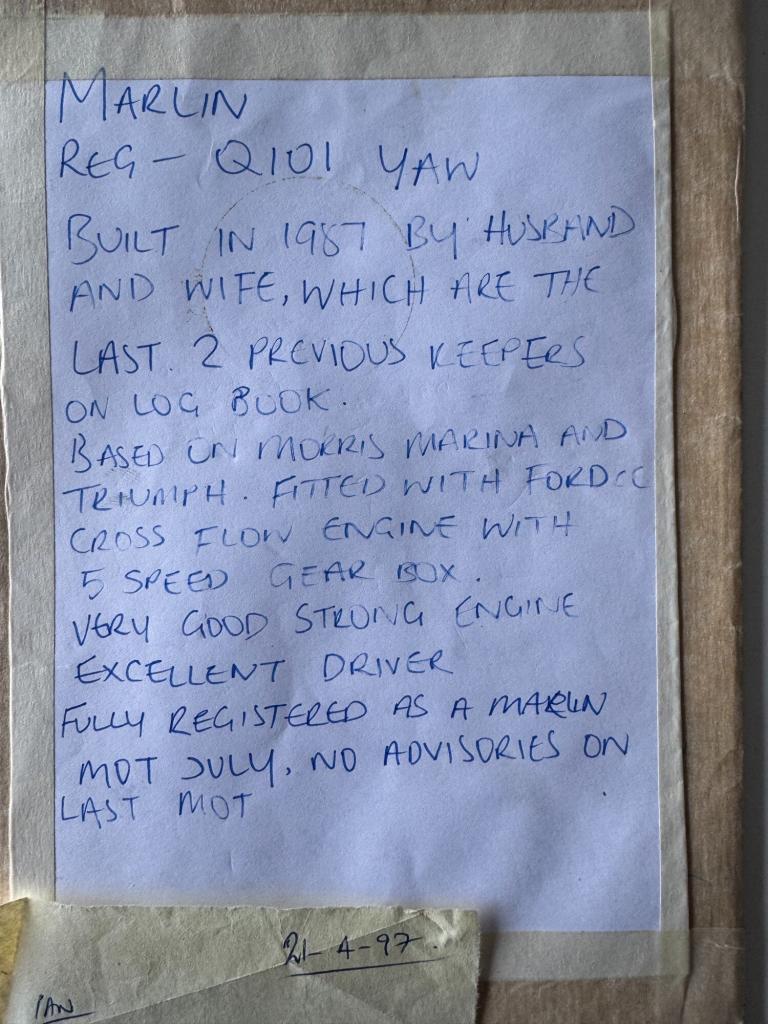 MARLIN
REG - Q101 YAW
BUILT IN 1987 BY HUSBAND
AND WIFE, WHICH ARE THE
LAST. 2 PREVIOUS KEEPERS
ON LOG BOOK.
BASED ON MORRIS MARINA AND
TRIUMPH. FITTED WITH FORD
CROSS FLOW ENGINE WITH
5 SPEED GEAR BOX.
VERY GOOD STRONG ENGINE
EXCELLENT DRIVER
FULLY REGISTERED AS A MARLIN
MOT JULY, NO ADVISORIES ON
LAST MOT
21-4-97.
IAN